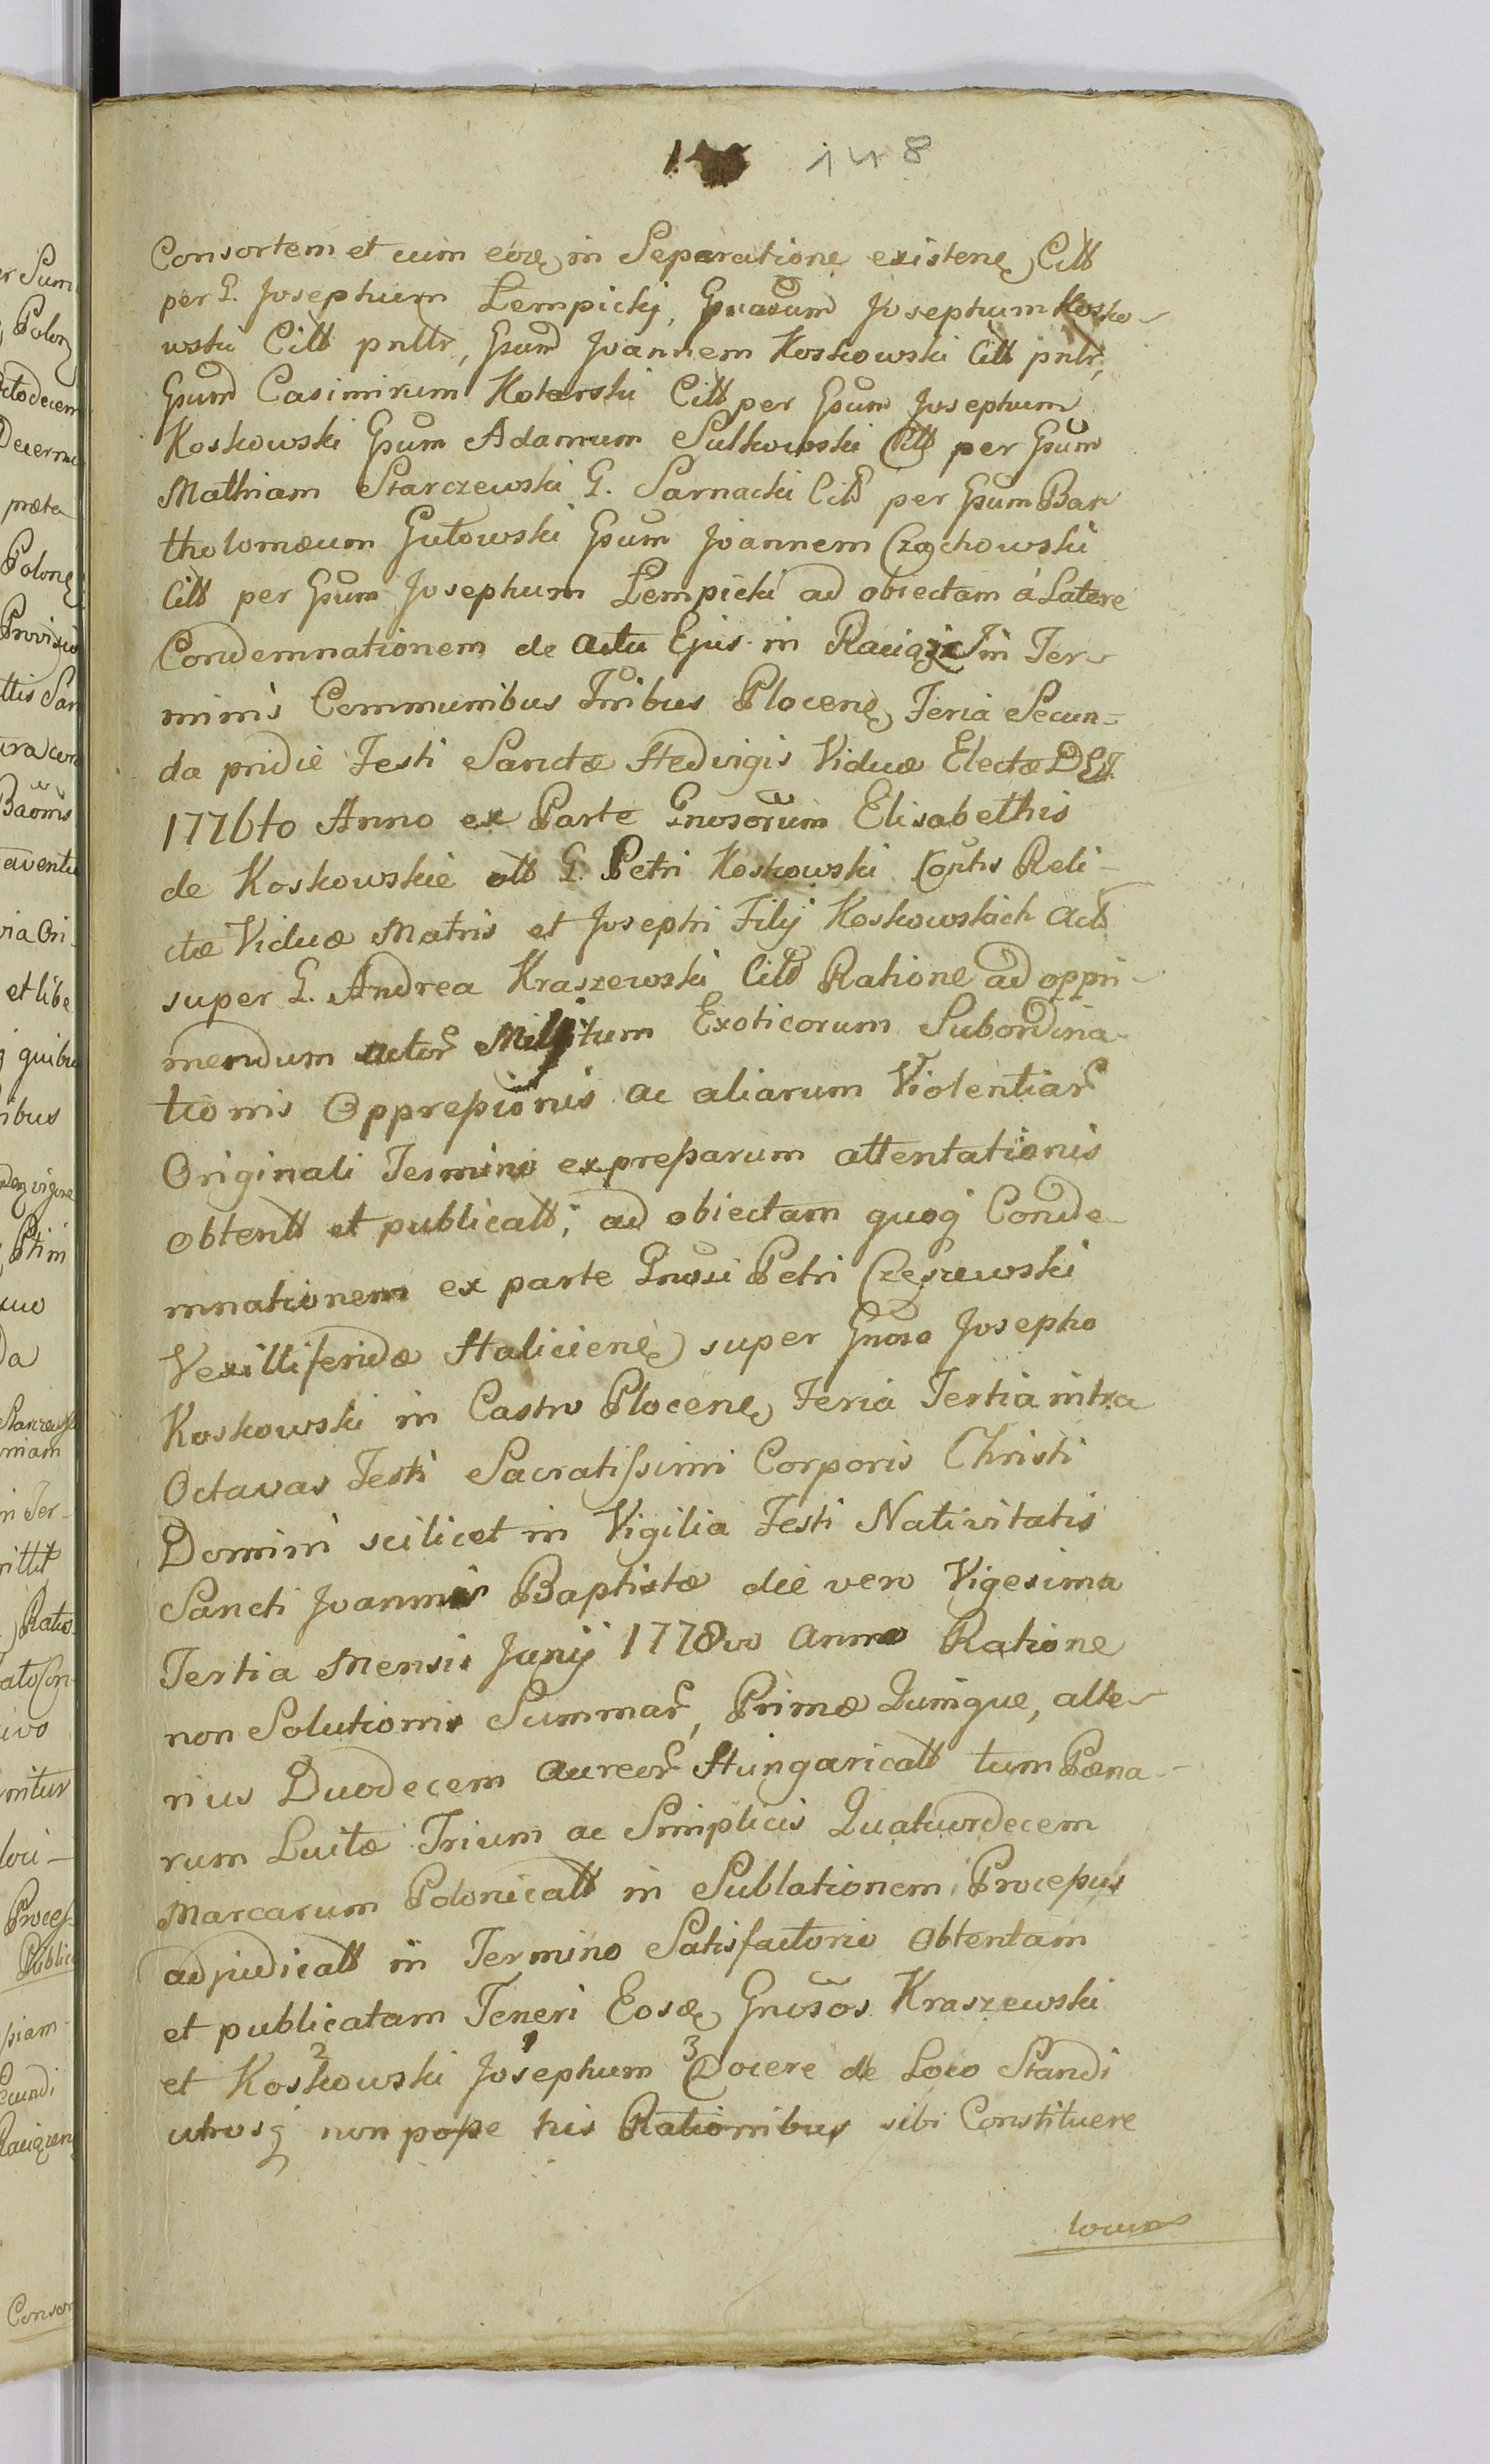 148
Consortem et cum eoę in Separatione existenę Citt
per G. Josephum Lempicki, Gnosum Josephum Kosko-
wski Citt pnttr, Gsum Joannem Koskowski Citt pntr,
Gsum Casimirum Koterski Citt per Gsum Josephum
Koskowski Gsum Adamum Sulkowski Citt per Gsum
Mathiam Starczewski G. Sarnacki Citt per Gsum Bar
tholomæum Gutowski Gsum Joannem Czochowski
Citt per Gsum Josephum Lempicki ad obiectam á Latere
Condemnationem de actu Ejus in Raciąż in Ter-
minis Communibus Tribus Plocenę Feria Secun-
da pridie Festi Sanctæ Hedvigis Viduæ Electæ
1776to Anno ex Parte Gnosorum Elisabethis
de Koskowskie ott G. Petri Koskowski Conthis Reli-
ctæ Viduæ Matris et Josephi Filij Koskowskich Act
super G. Andrea Kraszewski Citt Ratione ad oppri-
mendum actor Militum Exoticorum Subordina-
tionis Oppressionis ac aliarum Violentiar
Originali Termino expressarum attentationis
obtentt et publicatt, ad obiectam quoq Conde-
mnationem ex parte Gnosi Petri Czeszewski
Vexilliferidæ Halicienę super Gnoso Josepho
Koskowski in Castro Plocenę Feria Tertia intra
Octavas Festi Sacratissimi Corporis Christi
Domini scilicet in Vigilia Festi Nativitatis
Sancti Joannis Baptistæ die vero Vigesima
Tertia Mensis Junij 1778vo Anno Ratione
non Solutionis Summar, Primæ Quinque, alte-
rius Duodecem aureor Hungaricatt tum Pæna-
rum Luitæ Trium ac Simplicis Quatuordecem
Marcarum Polonicatt in Sublationem Processus
adjudicatt in Termino Satisfactorio Obtentam
et publicatam Teneri Eosdę Gnosos Kraszewski
et Koskowski Josephum Docere de Loco Standi
utrosq non posse his Rationibus sibi Constituere
locum